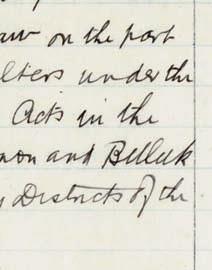 on the part
under the
Acts in the
and Belluk
Districts of the